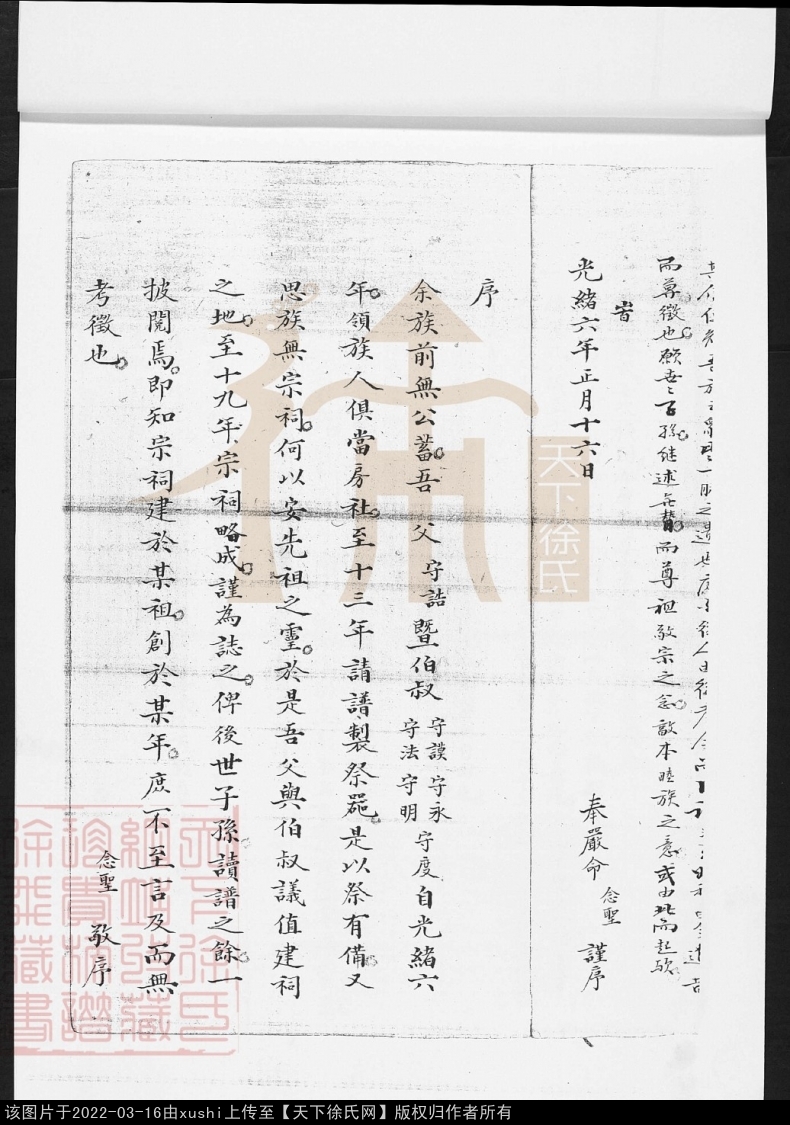 而尊徵也願世〻子孫繼述無替而尊祖敬宗之念敦本睦族之意或由此而起歟
旹
光緒六年正月十六日
奉嚴命念聖謹序
序
余族前無公蓄吾父守誥暨伯叔守謨守法守永守明守度自光緒六
年領族人俱當房社至十三年請譜製祭器是以祭有備又
思族無宗祠何以安先祖之靈於是吾父與伯叔議值建祠
之地至十九年宗祠略成謹為誌之俾後世子孫讀譜之餘一
披閱焉即知宗祠建於某祖創於某年庶不至言及而無
考徵也
念聖敬序
天下徐氏
该图片于2022-03-16由xushi上传至【天下徐氏网】版权归作者所有